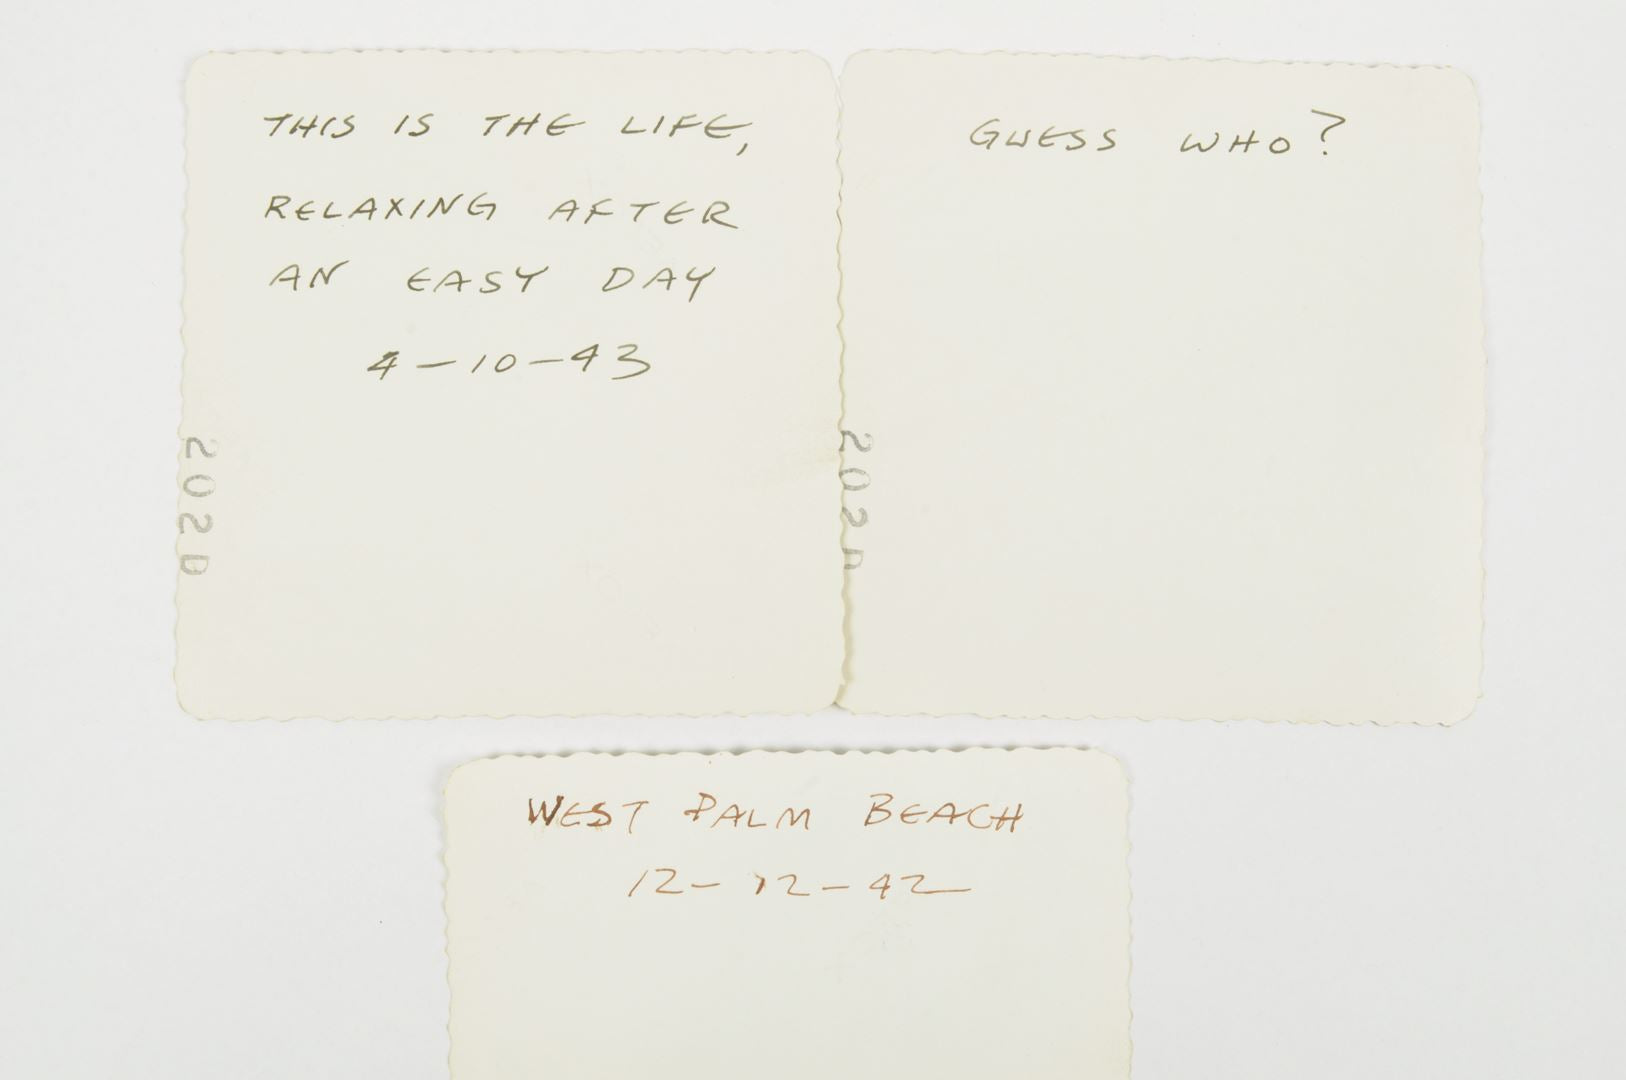 THIS IS THE LIFE,
RELAXING AFTER
AN EASY DAY
4-10-43
202D
GUESS WHO?
202D
WEST PALM BEACH
12-12-42